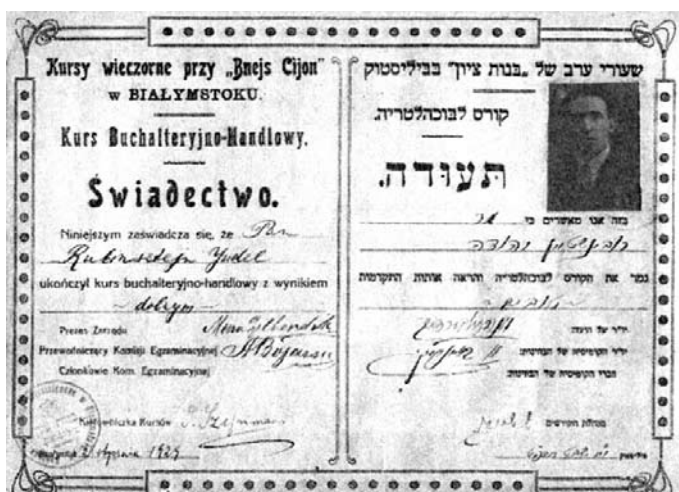 Kursy wieczorne przy „Bnejs Cijon"
w BIAŁYMSTOKU.
Kurs Buchalteryjno-Handlowy.
Świadectwo.
Niniejszym zaświadcza się, że Pan
Rubinsztejn Judel
ukończył kurs buchalteryjno-handlowy z wynikiem
dobrym
Prezes Zarządu
Przewodniczący Komisji Egzaminacyjnej
Członkowie Kom. Egzaminacyjnej
Kierowniczka Kursów
stycznia 1929
שעורי ערב של „בנות ציון" בביליסטוק
קורס לבוכהלטריה.
תעודה.
בזה אנו מאשרים כי מר
רובינשטיין יהודה
גמר את הקורס לבוכהלטריה והראה אותות התקדמות
טובים
יו"ר של הועד:
יו"ר הקומיסיה של הבחינות:
חברי הקומיסיה של הבחינות:
מנהלת הקורסים